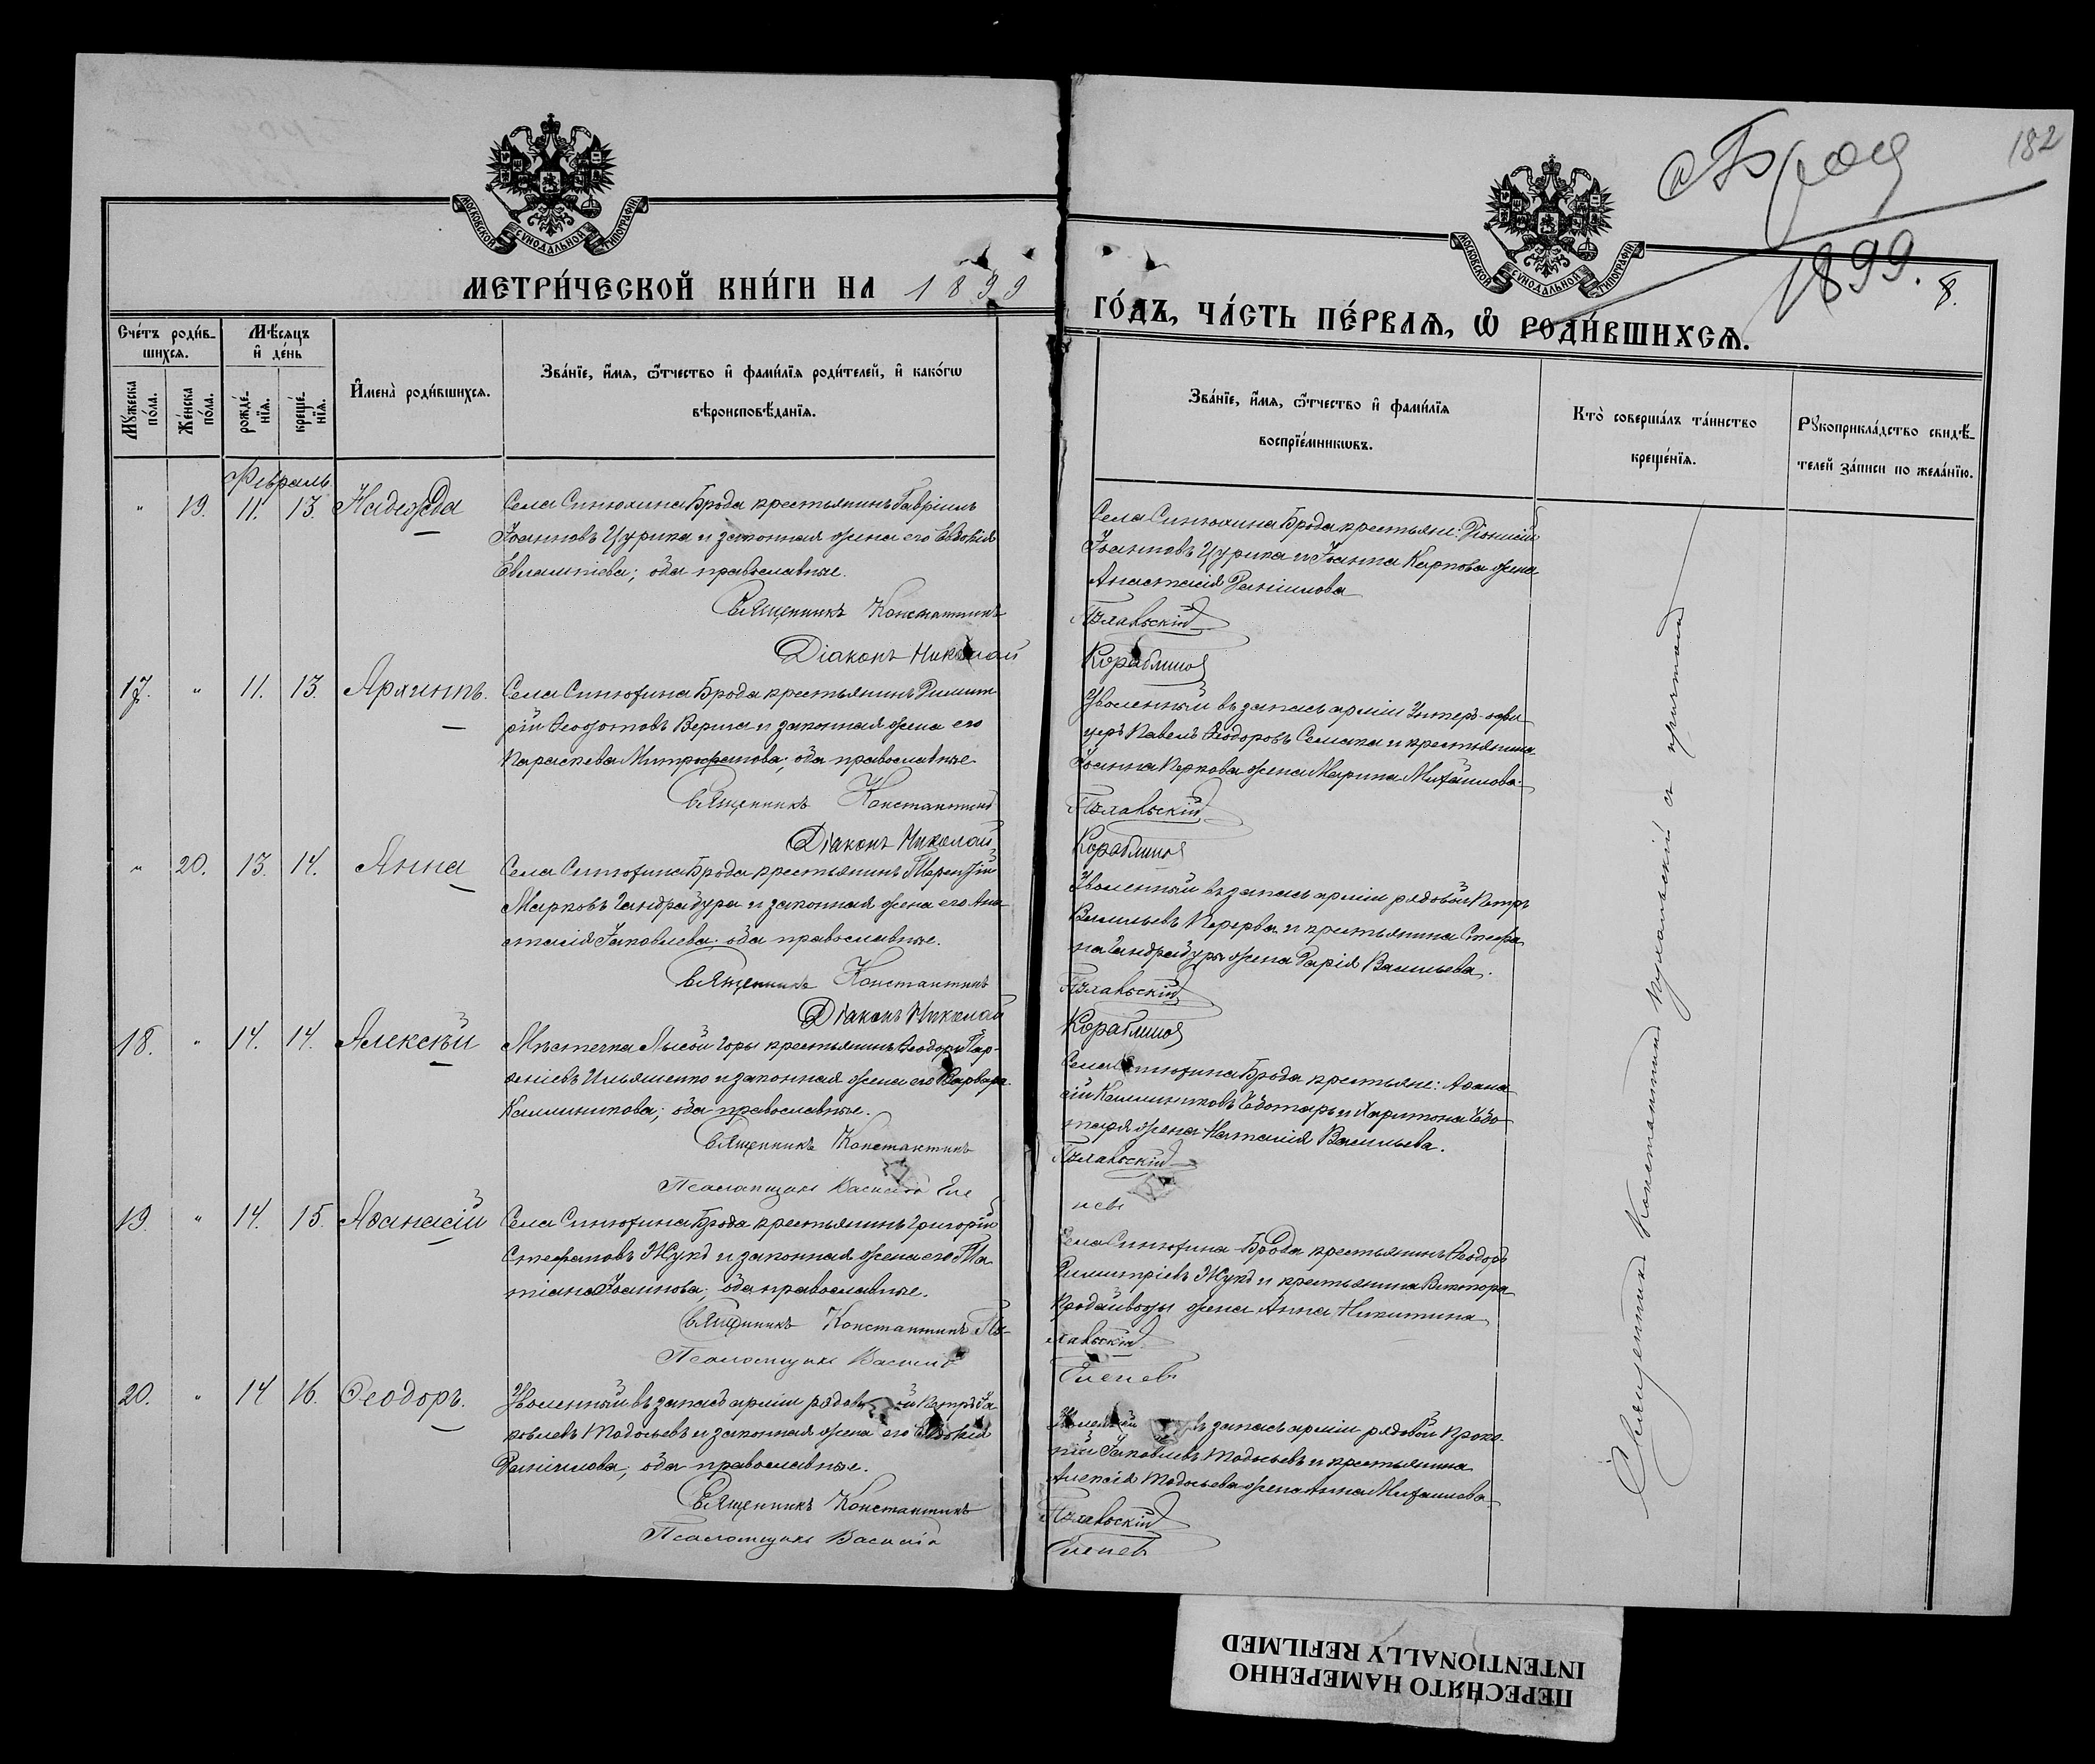 с Брод
182
1899.
8.
МОСКОВСКОЙ СѴНОДАЛЬНОЙ ТИПОГРАФІИ
МОСКОВСКОЙ СѴНОДАЛЬНОЙ ТИПОГРАФІИ
МЕТРИ́ЧЕСКОЙ КНИ́ГИ НА 1899
ГО́ДЪ, ЧА́СТЬ ПЕ́РВАѦ, Ѡ҆ РОДИ́ВШИХСѦ.
Сче́тъ роди́в-
шихся.
Мѣ́сяцъ
и҆ де́нь
Мꙋ́жеска
по́ла.
Же́нска
по́ла.
рожде́-
нїѧ.
креще́-
нїѧ.
И҆мена̀ роди́вшихсѧ.
Зва́нїе, и҆́мѧ, ѻ҆́тчество и҆ фами́лїѧ роди́телей, и҆ како́гѡ
вѣроисповѣ́данїѧ.
Зва́нїе, и҆́мѧ, ѻ҆́тчество и҆ фами́лїѧ
воспрїе́мникѡвъ.
Кто̀ соверша́лъ та́инство
креще́нїѧ.
Рꙋкоприкла́дство свидѣ́-
телей за́писи по жела́нїю.
Февраль
" 19. 11. 13. Надежда
Села Синюхина Брода крестьянинъ Гавріилъ
Іоанновъ Цурика и законная жена его Евдокія
Евлампіева; оба православные.
Священникъ Константинъ
Діаконъ Николай
Села Синюхина Брода крестьяне: Діонисій
Іоанновъ Цурика и Іоанна Карпова жена
Анастасія Даніилова
Кораблинов
17. " 11. 13. Архиппъ.
Села Синюхина Брода крестьянинъ Димит-
рій Ѳеодотовъ Верша и законная жена его
Параскева Митрофанова; оба православные.
Священникъ Константинъ
Діаконъ Николай
Уволенный въ запасъ арміи Унтеръ-офи-
церъ Павелъ Ѳеодоровъ Семака и крестьянина
Іоанна Перкова жена Марина Михаилова.
Кораблинов
" 20. 13. 14. Анна
Села Синюхина Брода крестьянинъ Терентій
Марковъ Чандрадура и законная жена его Ана-
стасія Іаковлева оба православные.
Священникъ Константинъ
Діаконъ Николай
Уволенный въ запасъ арміи рядовой Петръ
Васильевъ Перерва и крестьянина Стефа-
на жена Дарія Васильева.
Кораблинов
18. " 14. 14. Алексѣй
Мѣстечка Лысой Горы крестьянинъ Ѳеодоръ Пар-
ѳеніевъ Ильяшенко и законная жена его Варвара
Каллиникова; оба православные.
Священникъ Константинъ
Псаломщикъ Василій Еле
невъ
Села Синюхина Брода крестьяне: Аѳана-
сій Каллиниковъ Чеботарь и Харитона Чебо-
таря жена Наталія Васильева.
19. " 14. 15. Аѳанасій
Села Синюхина Брода крестьянинъ Григорій
Стефановъ Жукъ и законная жена его Та-
тіана Іоаннова; оба православные.
Священникъ Константинъ
Псаломщикъ Василій
Еленевъ
Села Синюхина Брода крестьянинъ Ѳеодоръ
Димитріевъ Жукъ и крестьянина Виктора
Продайвозы жена Анна Никитина
20. " 14 16. Ѳеодоръ.
Уволенный въ запасъ арміи рядовой Петръ Іа-
ковлевъ Тодосьевъ и законная жена его Евдокія
Даніилова, оба православные.
Священникъ Константинъ
Псаломщикъ Василій
Еленевъ
Уволенный въ запасъ арміи рядовой Проко-
пій Іаковлевъ Тодосьевъ и крестьянина
Алексія Тодосьева жена Анна Михаилова
Священникъ Константинъ съ причтомъ
ПЕРЕСНЯТО НАМЕРЕННО
INTENTIONALLY REFILMED